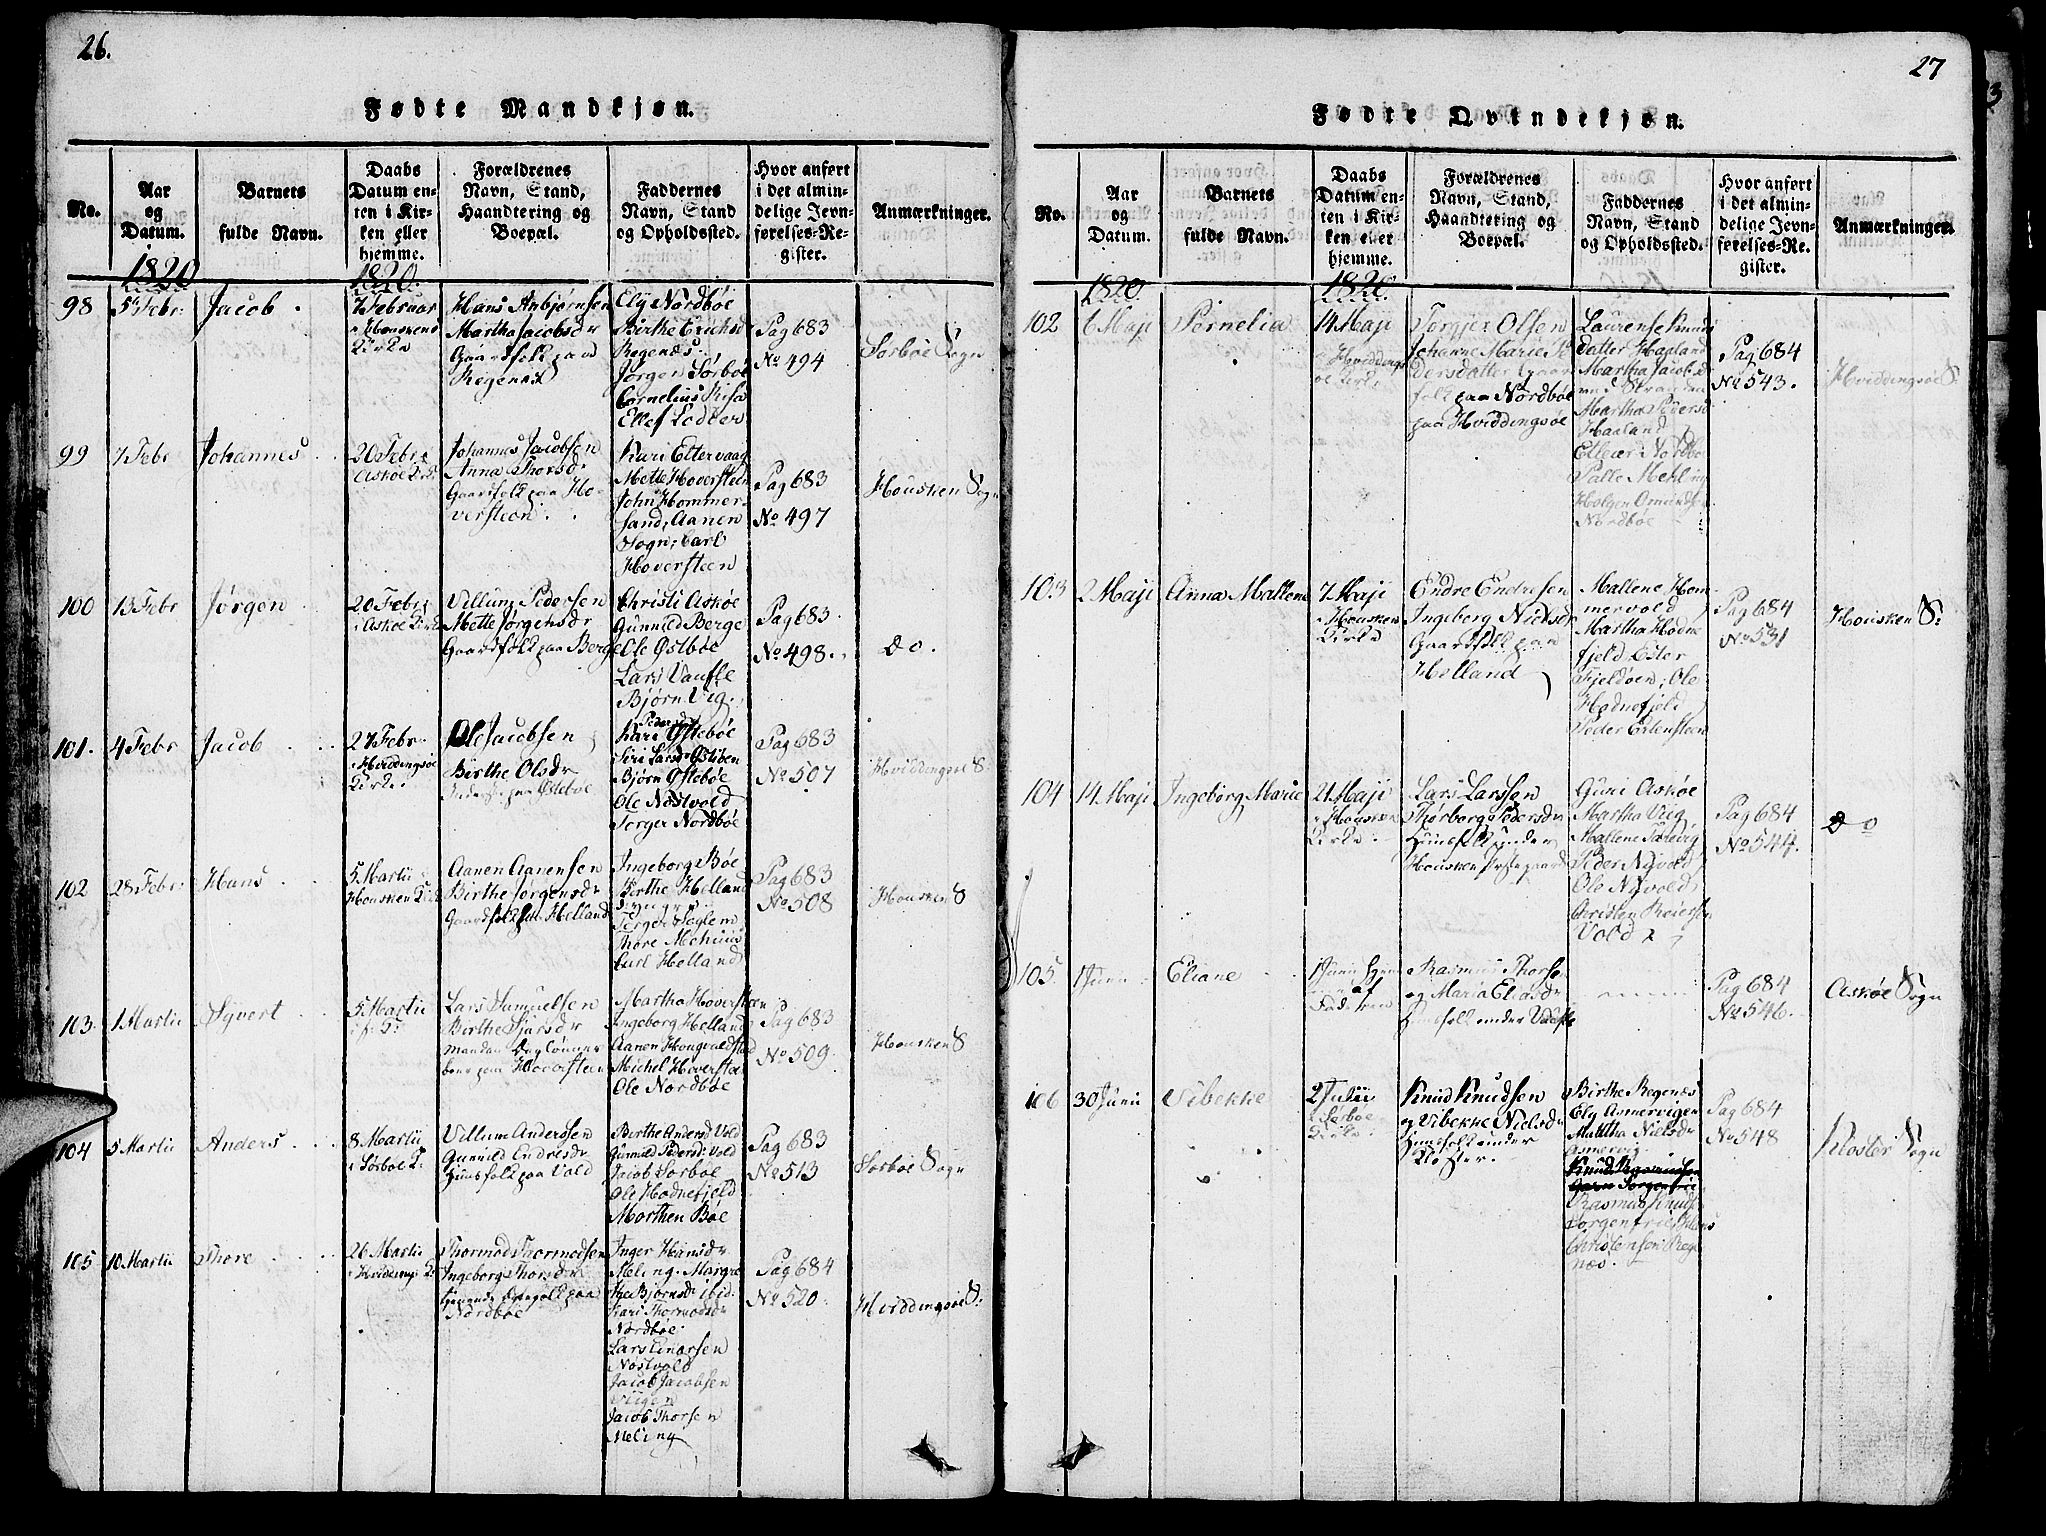 26.
Fødte Mandkjøn.
No.
Aar
og
Datum.
Barnets
fulde Navn.
Daabs
Datum en-
ten i Kir-
ken eller
hjemme.
Forældrenes
Navn, Stand,
Haandtering og
Boepæl.
Faddernes
Navn, Stand
og Opholdssted.
Hvor anført
i det almin-
delige Jevn-
førelses-Re-
gister.
Anmærkninger.
1820
1820
98
5te Febr:
Jacob
7 Februar
i Housken
Kirke
Hans Asbjørnsen
Martha Jacobsdr
Gaardfolk paa
Regenæs
Ely Nordbøe
Birthe Erichsd
Regenæs
Jørgen Sørbøe
Cornelius
Ellef Lodden
Pag 683
No 494
Sørbøe Sogn
99
7 Febr
Johannes
20 Febr
Askøe K
Johannes Jacobsen
Anna Thorsdr
Gaardfolk paa Ho-
versteen
Kari Ettervaag
Mette Hoversteen
John Hommer-
sand, Aanen
Sogn, Carl
Hoversteen
Pag 683
No 497
Housken Sogn
100
13 Febr
Jørgen
20 Febr
i Askøe Kirke
Villum Pedersen
Mette Jørgensdr
Gaardfolk paa Berge
Christi Askøe
Gunnild Berge
Ole Østbøe
Lars Vaufle
Bjørn Viig
Pag 683
No 498
Do.
101.
4 Febr
Jacob
27 Febr
i Hviddingsøe
Kirke
Ole Jacobsen
Birthe Olsdr
paa Østebøe
Peders
Kari Østebøe
Siri Larsdr Østeboe
Bjørn Østebøe
Ole Nøstvold
Torger Nordbøe
Pag 683
No 507
Hviddingsøe S
102
28 Febr:
Hans
5 Martii
Housken Kirk
Aanen Aanensen
Birthe Jørgensdr
Gaardfolk paa Helland
Ingeborg Bøe
Birthe Helland
Torger Søglem
Thore Mehuus
Carl Helland
Pag 683
No 508
Housken S
103
1 Martii
Syvert
5 Martii
Lars Samuelsen
Birthe Sjursdr
manden Daglønner
boer paa Hoversteen
Martha Hoversteen
Ingeborg Helland
Aanen Hougvaldstad
Michel Hoverstee
Ole Nordbøe
Pag 683
No 509
Housken S
104
5 Martii
Anders
8 Martii
i Sørbøe K:
Villum Andersen
Gunnild Endresdr
Huusfolk paa Vold
Birthe Andersd Vold
Gunnild Pedersd: Vold
Jacob Sørboe
Ole Hodnefjeld
Morthen Bøe
Pag 683
No 513
Sørbøe Sogn
105
10 Martii
Thore
26 Martii
i Hviding: K
Thormod Thormodsen
Ingeborg Thorsdr
tjenende paa
Nordbøe
Inger Hansdr
Meling. Margre
the Bjørnsdr ibid.
Kari Thormodsdr
Nordbøe
Lars Einersen
Nøstvold
Jacob Jacobsen
Viigen
Jacob Thorsen
Meling
Pag 684
No 520
Hviddingsøe S:
27
Fødte Qvindekjøn.
No.
Aar
og
Datum.
Barnets
fulde Navn.
Daabs
Datum en-
ten i Kir-
ken eller
hjemme.
Forældrenes
Navn, Stand,
Haandtering og
Boepæl.
Faddernes
Navn, Stand
og Opholdssted.
Hvor anført
i det almin-
delige Jevn-
førelses-Re-
gister.
Anmærkninger.
1820
1820
102
6 Maji
Pernelia
14 Maji
i Hviddings
øe Kirke
Torgjer Olsen
Johanne Marie Pe
dersdatter Gaard
folk paa Nordbøe
paa Hviddingsøe
Laurense Knuds
datter Haaland
Martha Jacobsd
Martha Pedersd
Haaland
Nordbo
Palle Mehling
Holgen Omundsen
Nordbøe
Pag 684
No 543.
Hviddingsøe S
103
2 Maji
Anna Mallene
7 Maji
i Housken
Kirke
Endre Endresen
Ingeborg Nielsdr
Gaardfolk paa
Helland
Mallene Hom
mervold
Martha Hodne
fjeld Ester
Fjeldøen, Ole
Hodnefjeld
Peder Ertensteen
Pag 684
No 531
Housken S:
104
14 Maji
Ingeborg Marie
21 Maji
i Housken
Kirke
Lars Larssen
Thorborg Pedersdr
Huusfolk under
Housken Præstegaard
Guri Askøe
Martha Viig
Mallene
Peder Nyvold
Ole Nyvold
Christen Reiersen
Vold
Pag 684
No 544.
Do
105
1 Junii
Eliane
1 Junii hjem
af
Faderen
Rasmus Thorse
og Maria Eliasdr
Huusfolk under Vaufle
Pag 684
No 546
Askøe Sogn
106
30 Junii
Vibekke
2 Julii
i Sørboe
Kirke
Knud Knudsen
og Vibekke Nielsdr
Huusfolk under
Kloster.
Birthe Regenæs
Ely Asmervigen
Martha Nielsdr
Asmervig
Rasmus Knuds
Sorgenfrie
Christensen Rege
næs.
Pag 684
No 548
Kloster Sogn